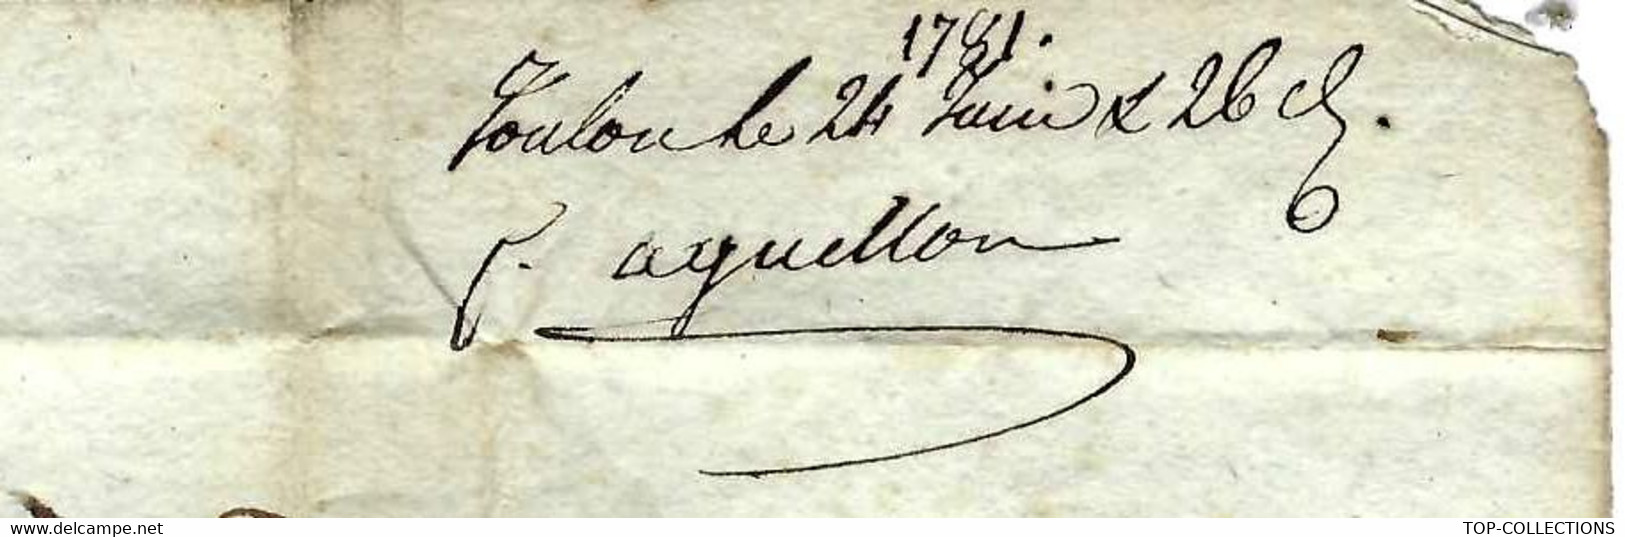 1781.
Toulon le 24 Juin & 26 dt.
P. aguillon
www.delcampe.net
TOP-COLLECTIONS